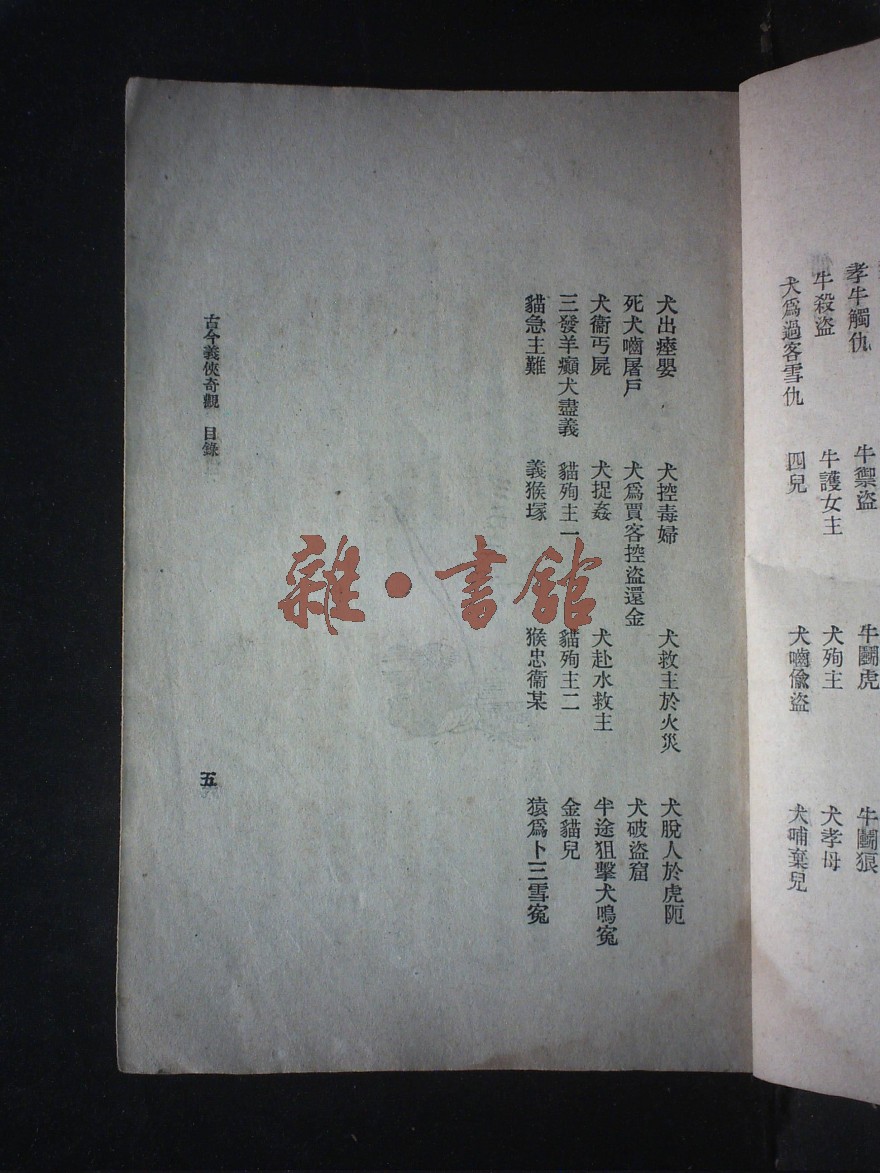 孝牛觸仇　牛禦盜　牛鬬虎　牛鬬狼
牛殺盜　牛護女主　犬殉主　犬孝母
犬爲過客雪仇　四兒　犬嚙偸盜　犬哺棄兒
犬出瘞嬰　犬控毒婦　犬救主於火災　犬脫人於虎阨
死犬嚙屠戶　犬爲賈客控盜還金　犬破盜窟
犬衞丐屍　犬捉姦　犬赴水救主　半途狙擊犬鳴寃
三發羊癲犬盡義　貓殉主一　貓殉主二　金貓兒
貓急主難　義猴塚　猴忠衞某　猿爲卜三雪寃
古今義俠奇觀　目錄
五
雜·書館